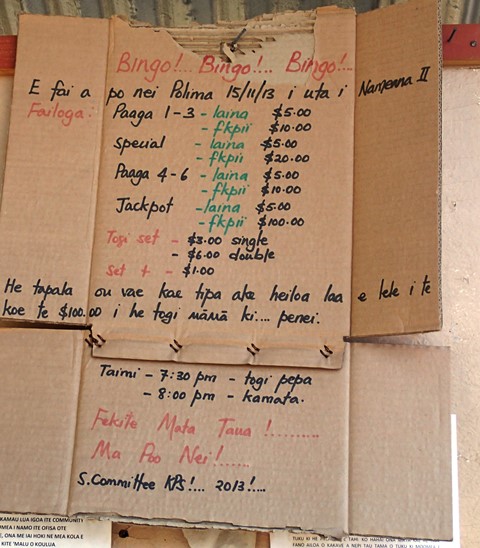 Bingo!.. Bingo!... Bingo!...
E fai a po nei Palima 15/11/13 i uta i Namenna II
Failoga: Paaga 1-3 - laina $5.00
- fkpii $10.00
Special - laina $5.00
- fkpii $20.00
Paaga 4-6 - laina $5.00
- fkpii $10.00
Jackpot - laina $5.00
- fkpii $100.00
Togi set - $3.00 single
- $6.00 double
Set + - $1.00
He tapala ou vae kae tipa ake heiloa laa e lele i te
koe te $100.00 i he togi māmā ki.... penei.
Taimi - 7:30 pm - togi pepa
- 8:00 pm - kamata.
Fekite Mata Taua !..........
Ma Poo Nei!......
S.Committee KPS!... 2013!....
KAMAU LUA IGOA ITE COMMUNITY
OMEA I NAMO ITE OFISA OTE
E, ONA ME IAI HOKI NE MEA KOLA E
KITE 'MALU O KOULUA